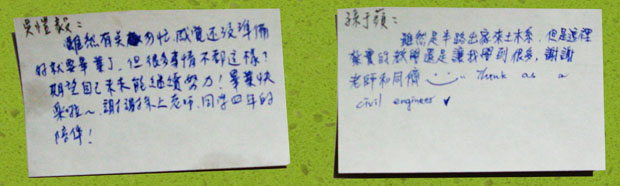 吳愷毅：
雖然有夠匆忙,感覺還沒準備
好就要畢業了,但很多事情不都這樣?
期望自己未來能繼續努力!畢業快
樂啦~ 謝謝系上老師、同學四年的
陪伴!
孫于蘋：
雖然是半路出家來土木系,但是這裡
紮實的教學還是讓我學到很多,謝謝
老師和同儕 Think as a
civil engineer